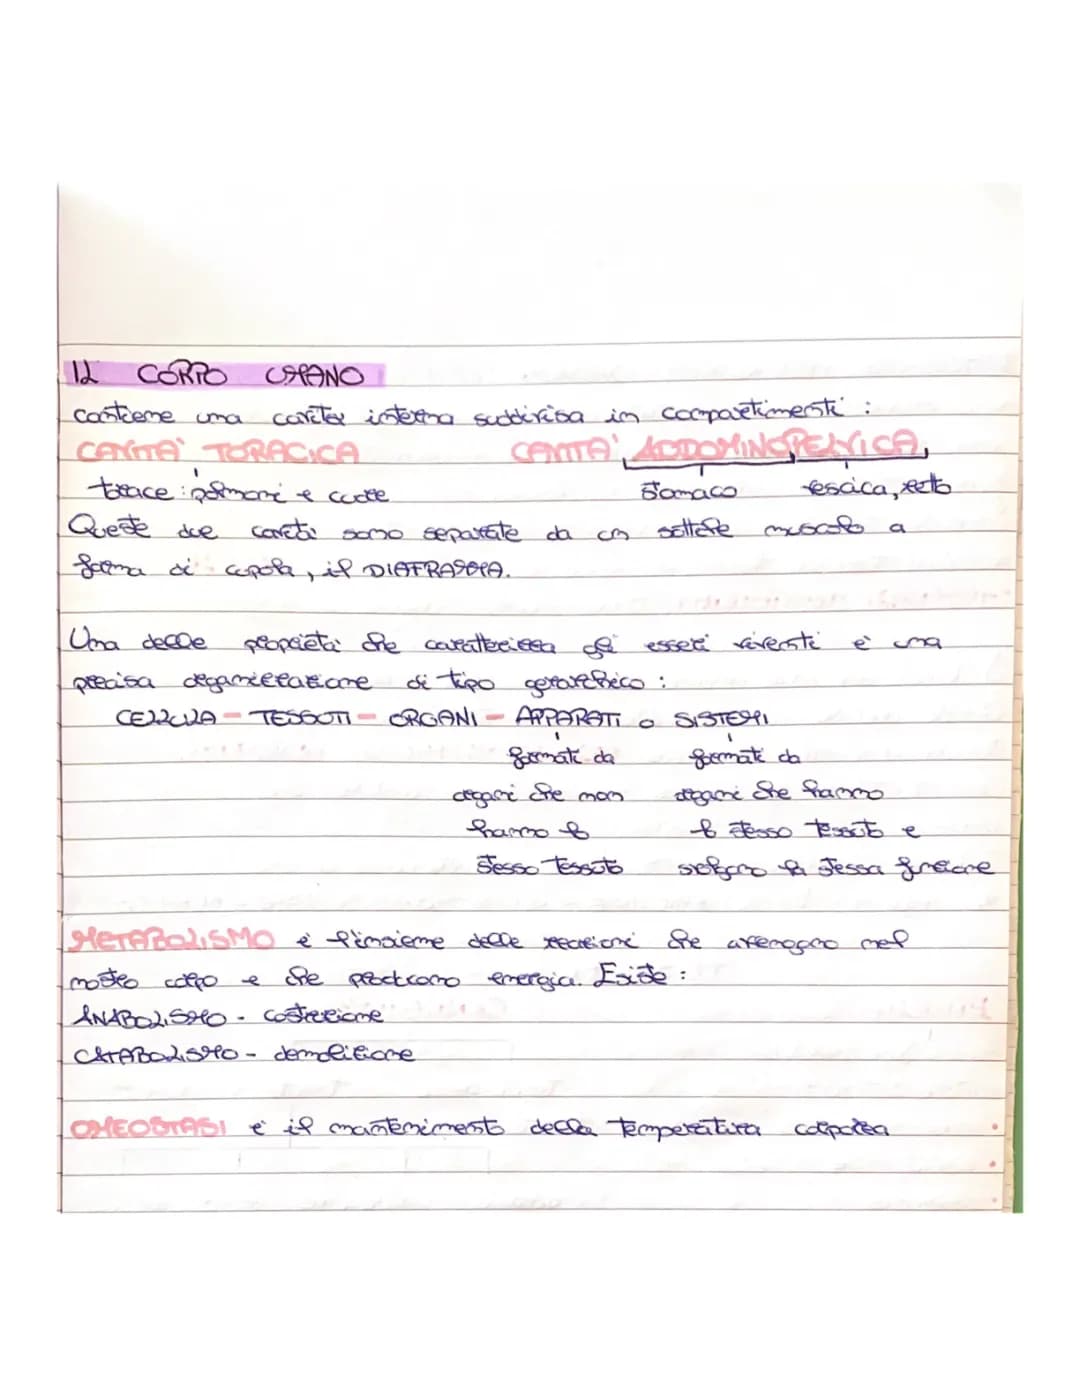 IL CORPO UMANO
Contiene una cavità interna suddivisa in compartimenti :
CAVITA' TORACICA CAVITA' ADDOMINOPELVICA
torace : polmoni e cuore stomaco vescica, retto
Queste due cavità sono separate da un sottile muscolo a
forma di cupola, il DIAFRAMMA.
Una delle proprietà che caratterizza gli esseri viventi è una
precisa organizzazione di tipo gerarchico :
CELLULA - TESSUTI - ORGANI - APPARATI o SISTEMI
formati da formati da
organi che non organi che hanno
hanno lo lo stesso tessuto e
stesso tessuto svolgono la stessa funzione
METABOLISMO è l'insieme delle reazioni che avvengono nel
nostro corpo e che producono energia. Esiste :
ANABOLISMO - costruzione
CATABOLISMO - demolizione
OMEOSTASI è il mantenimento della temperatura corporea